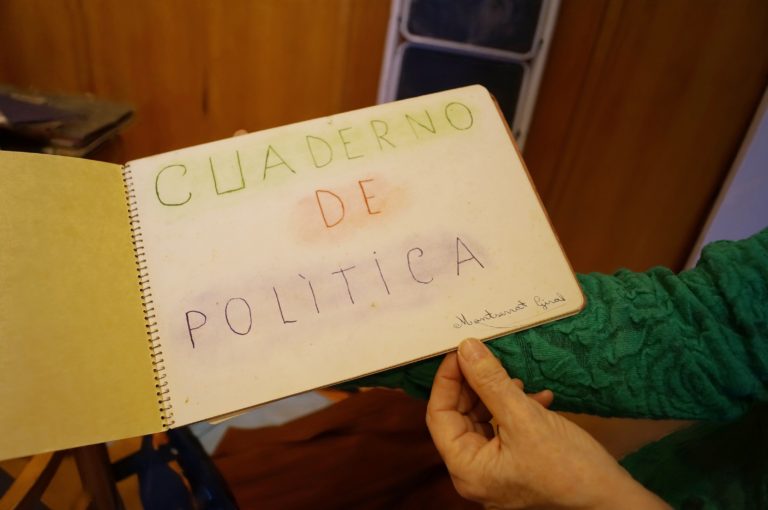 CUADERNO
DE
POLÌTİCA
Montserrat Giral